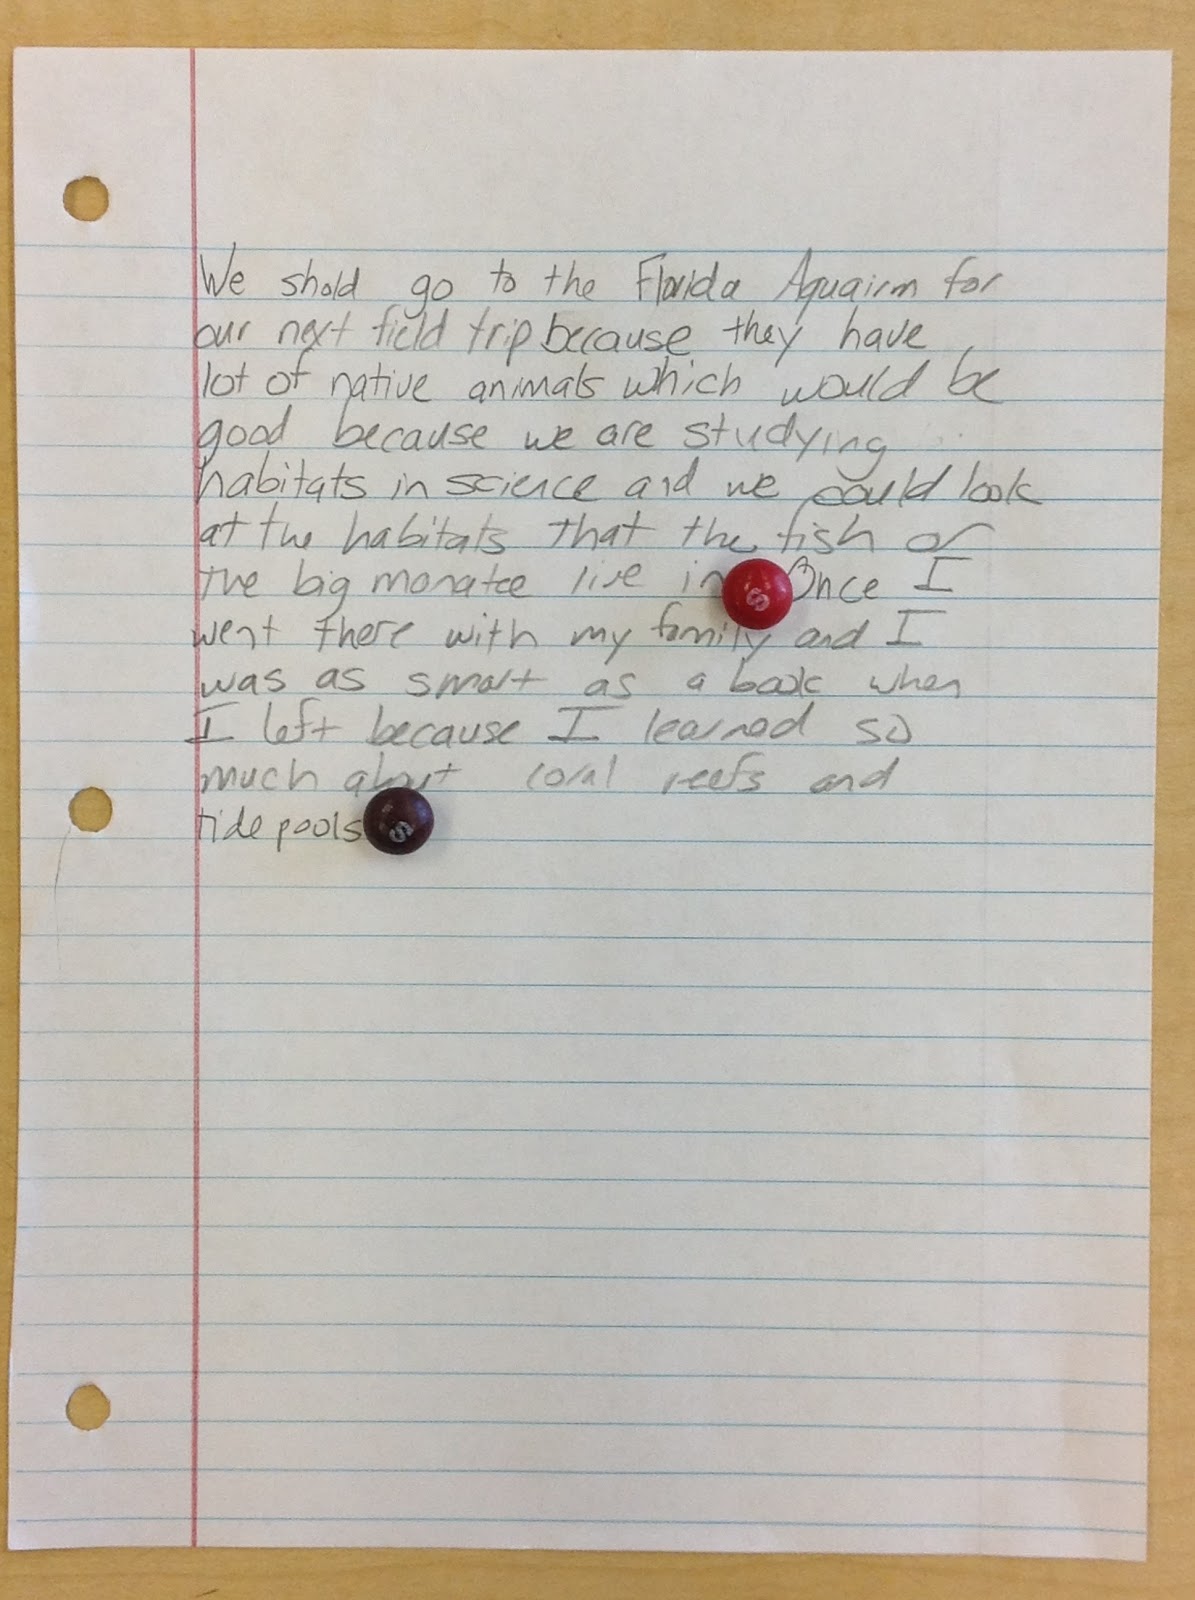 We shold go to the Florida Aquairm for
our next field trip because they have
lot of native animals which would be
good because we are studying
habitats in science and we could look
at the habitats that the fish or
the big monatee live in Once I
went there with my family and I
was as smart as a book when
I left because I learned so
much about coral reefs and
tide pools
S
S